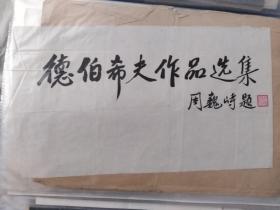 德伯希夫作品选集
周巍峙题